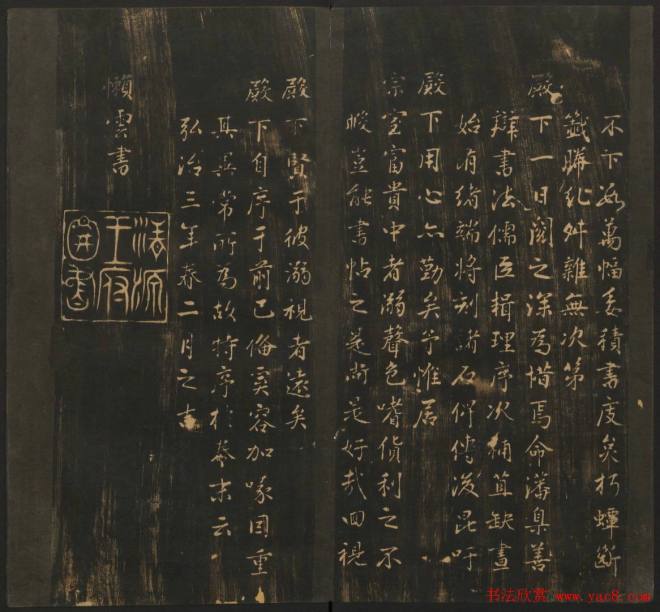 不下数萬幅委積書庋矣朽蟫斷
籤賜紀舛雜無次第
殿下一日閱之深為惜焉命藩臬善
辯書法儒臣輯理序次補苴缺畫
始有緒端將刻諸石俾傳後昆吁
殿下用心亦勤矣予惟居
宗室富貴中者溺聲色嗜貨利之不
暇豈能書帖之是尚是好哉回視
殿下賢于彼溺視者遠矣
殿下自序于前已備奚容加喙因重
其異常所為故特序於卷末云
弘治三年春二月之吉
懶雲書
王府圖書
书法欣赏 www.yac8.com